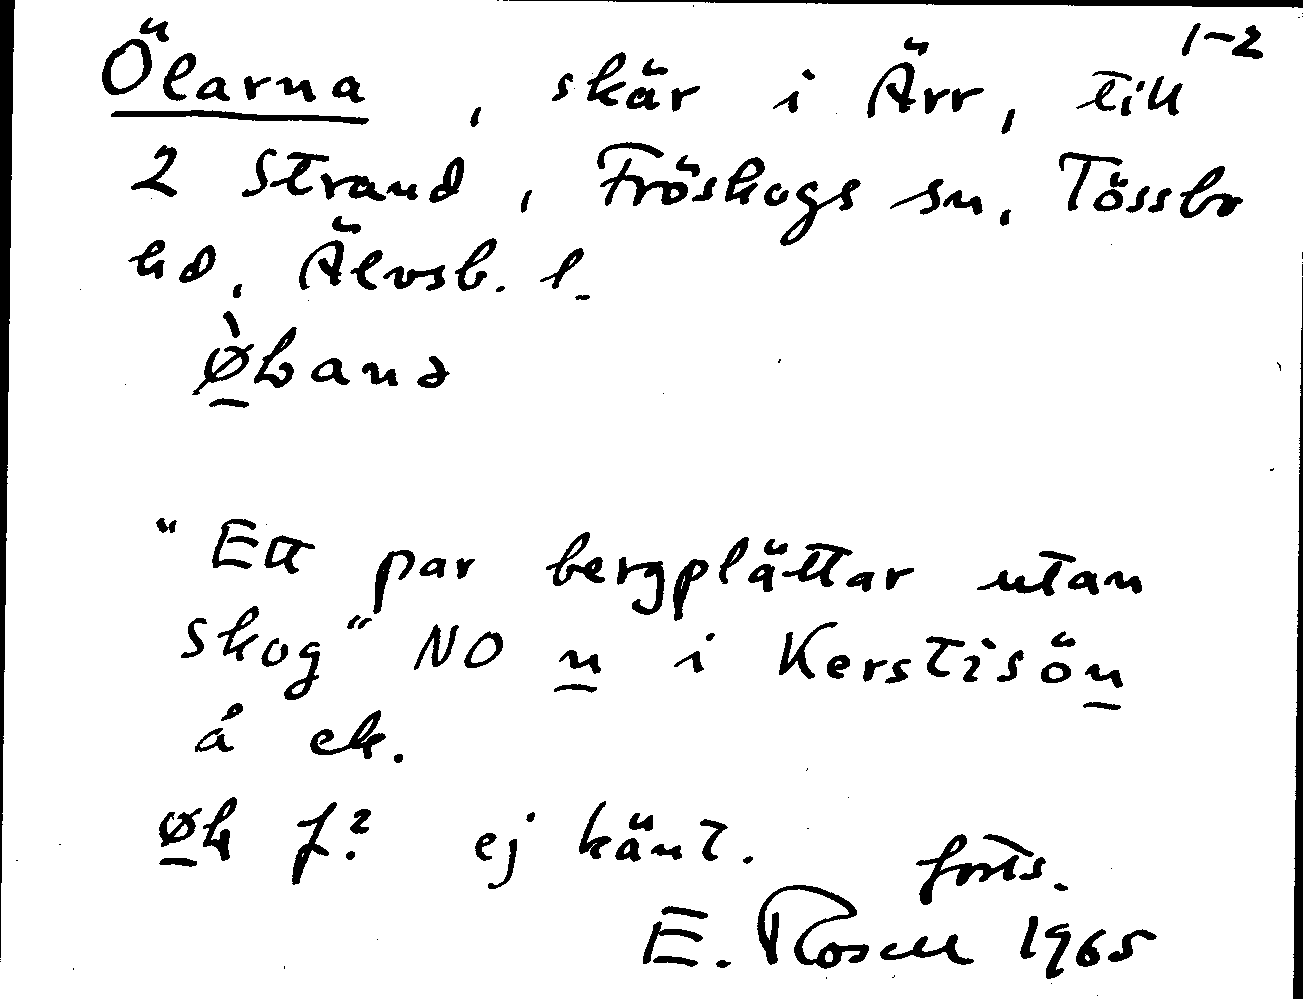 1-2
Ölarna, skär i Ärr, till
2 Strand, Fröskogs sn. Tössbo
hd. Älvsb. l.
"Ett par bergplättar utan
skog" NO n i Kerstisön
å ek.
f? ej känt. forts.
E. Rosell 1965